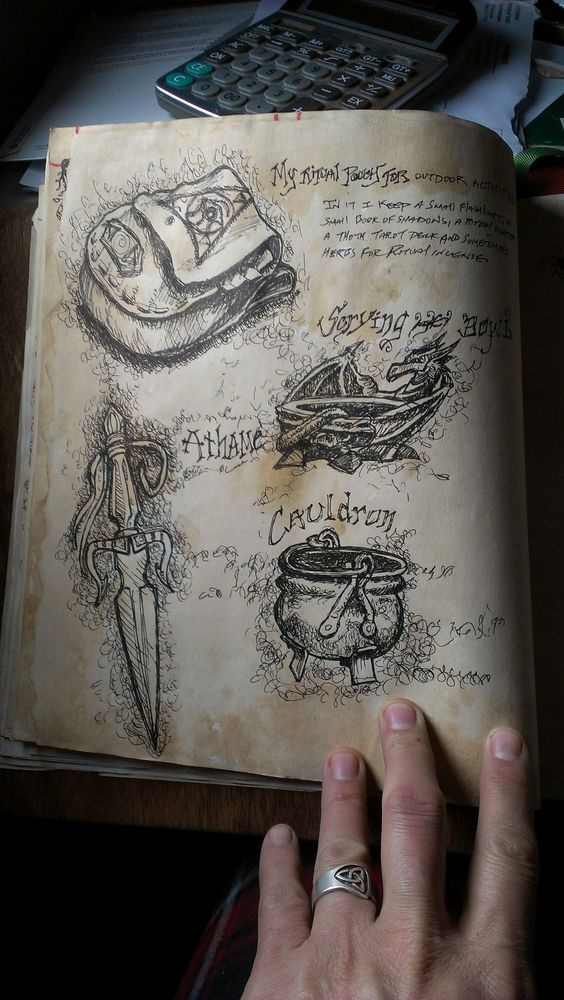 My Ritual Pouch For Outdoor Activities
In it I keep a small flashlight, a
small Book of Shadows, a
a Thoth Tarot Deck and sometimes
herbs for Ritual incense.
Scrying Bowl
Athame
Cauldron